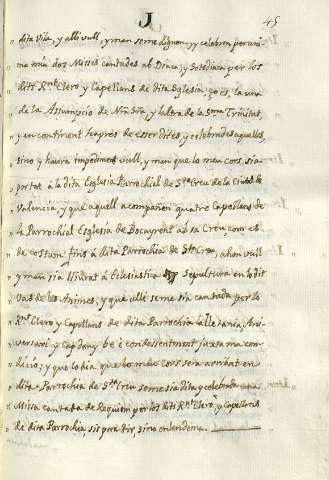 J 45
" dita Vila, y alli vull, y man serme diguen, y celebren per ani-
" ma mia dos Misses cantades ab Diaca, y Sotsdiaca per los
" dits Rnt Clero, y Capellans de dita Esglesia; ço es, la una
" de la Assumpcio de Nra Sra, y laltra de la Sma Trinitat,
" y en continent apres de esser dites, y celebrades aquelles,
" si no y haura impediment vull, y man que lo meu cors sia
" portat à la dita Esglesia Parrochial de Sta Creu de la Ciutat de
" Valencia, y que aquell acompañen quatre Capellans de
" la Parrochial Esglesia de Bocayrent ab sa Creu, com es
" de costum fins à dita Parrochia de Sta Creu, ahon vull
" y man sia lliurat à Eclesiastica Sepultura en lo dit
" Vas de les Animes, y que alli seme sia cantada per lo
" Rnt Clero y Capellans de dita Parrochia la lletania, Ani-
" versari, y Cap dany be è condessentment juxta ma con-
" dicio; y que lo dia que lo meu cors sera arribat en
" dita Parrochia de Sta Creu seme sia dita, y celebrada una
" Missa cantada de Requiem per los dits Rnt Clero, y Capellans
" de dita Parrochia si es per dir, sino en lendema.